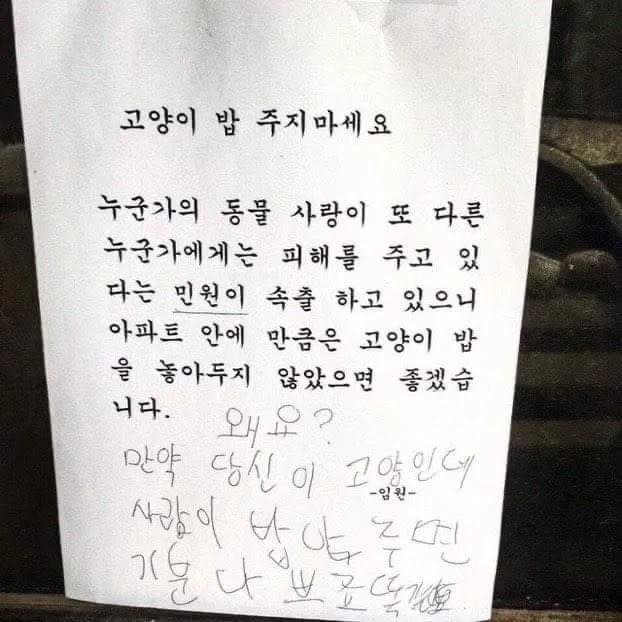 고양이 밥 주지마세요
누군가의 동물 사랑이 또 다른
누군가에게는 피해를 주고 있
다는 민원이 속출 하고 있으니
아파트 안에 만큼은 고양이 밥
을 놓아두지 않았으면 좋겠습
니다.
왜요?
만약 당신이 고양인데
-임원-
사람이 밥 안 주면
기분 나